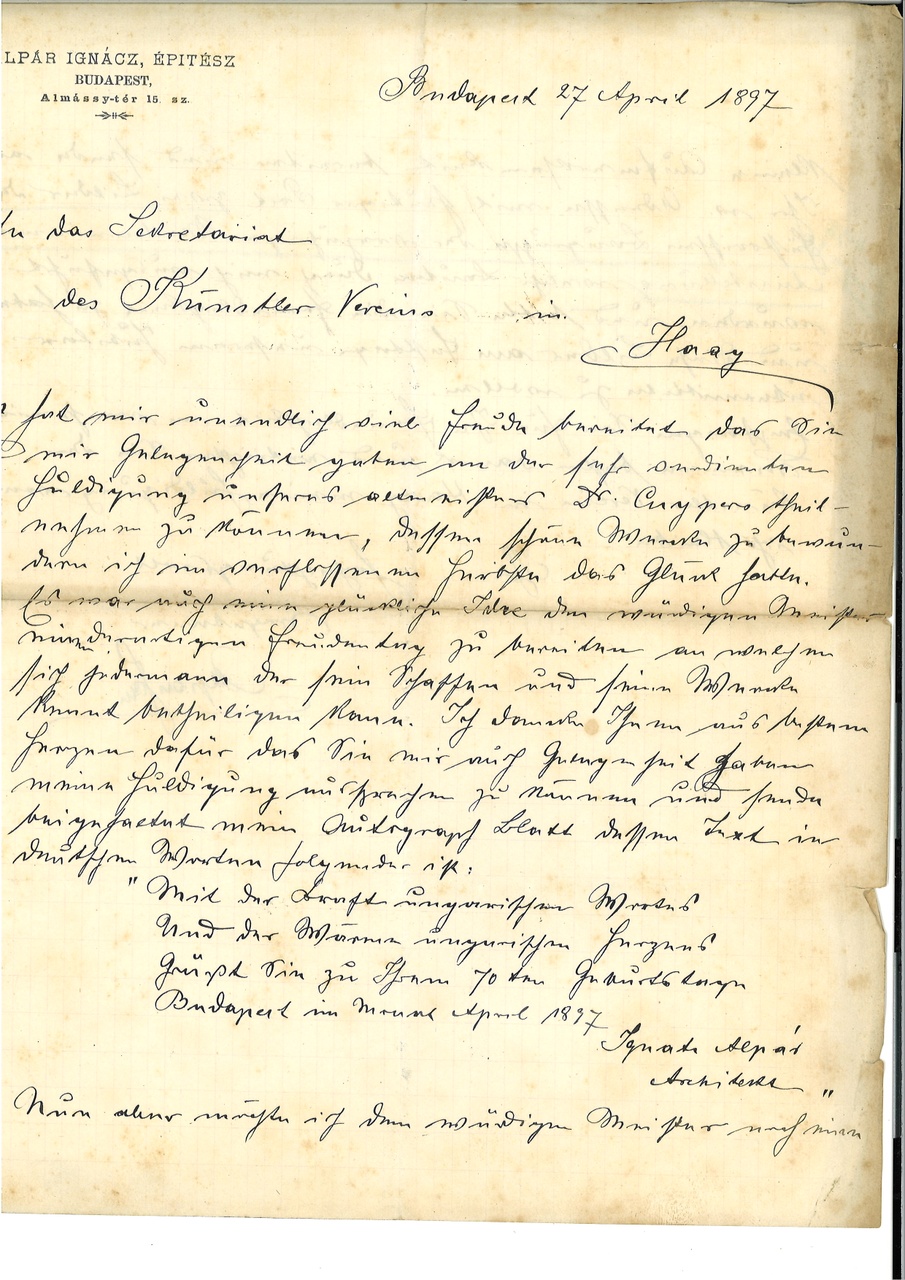 LPÁR IGNÁCZ, ÉPITÉSZ
BUDAPEST,
Almássy-tér 15. sz.
Budapest 27 April 1897
An das Sekretariat
des Künstler Vereins in
Haag
hat mir unendlich viele Freude bereitet das Sie
mir Gelegenheit gaben an der sehr verdienten
Huldigung unseres altmeisters Dr. Cuypers theil-
nehmen zu können, dessen schöne Werke zu bewun-
dern ich im verflossenen Herbste das Glück hatte.
Es war auch eine glückliche Idee den würdigen Meister
einen derartigen Freudentag zu bereiten an welchen
sich jedermann der sein Schaffen und seine Werke
kennt betheiligen kann. Ich danke Ihnen aus bestem
Herzen dafür das Sie mir auch Gelegenheit gaben
meine Huldigung aussprechen zu können und sende
beigehaftet mein Autograph Blatt dessen Text in
deutschen Worten folgender ist:
" Mit der Kraft ungarischen Wortes
Und der Wärme ungarischen Herzens
Grüßt Sie zu Ihrem 70ten Geburtstage
Budapest im Monat April 1897
Ignatz Alpár
Architekt "
Nun aber möchte ich dem würdigen Meister noch einen